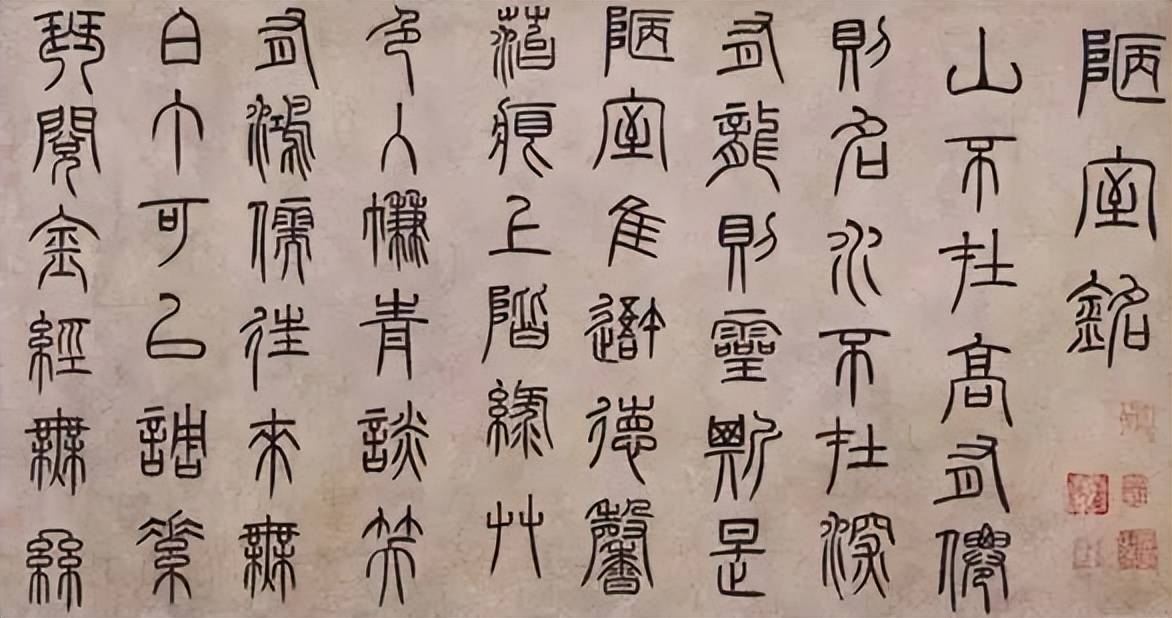 陋室銘
山不在高有僊
則名水不在深
有龍則靈斯是
陋室隹吾德馨
菭痕上階綠艸
色入㡘青談笑
有鴻儒往來無
白丁可以調素
琴閱金經無絲